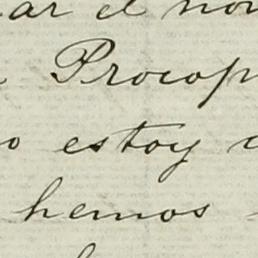 ar el nom
Procop
o estoy
hemos